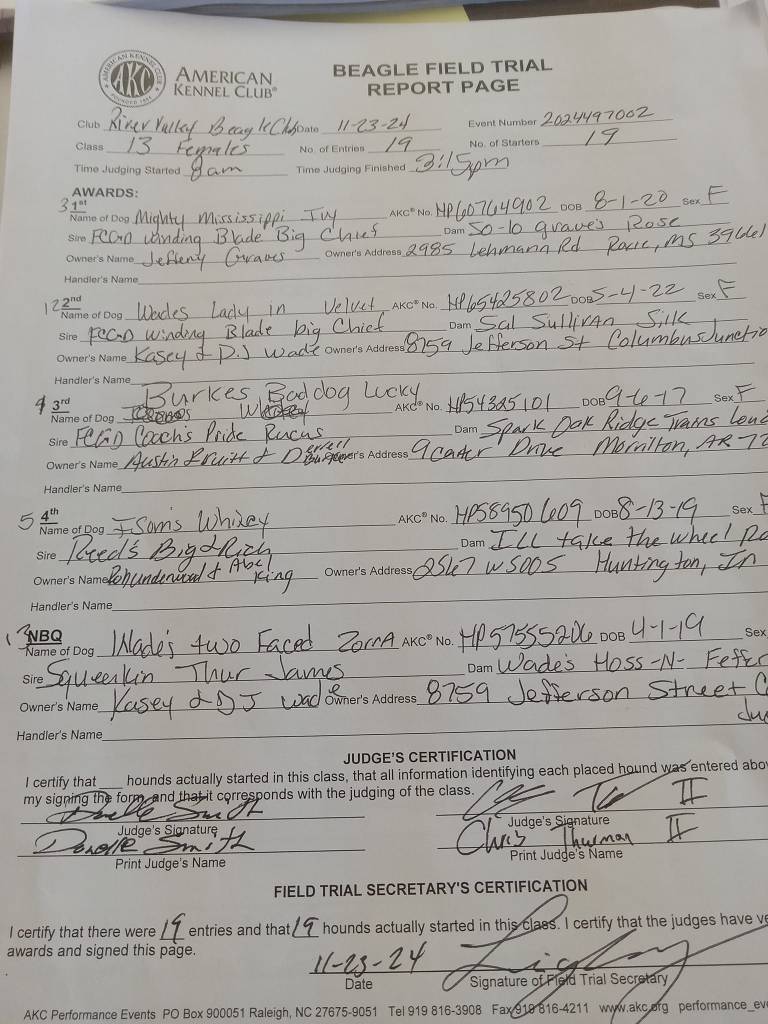 AMERICAN KENNEL CLUB®
BEAGLE FIELD TRIAL
REPORT PAGE
Club River Valley Beagle Club Date 11-23-24 Event Number 2024497002
Class 13 Females No. of Entries 19 No. of Starters 19
Time Judging Started 8am Time Judging Finished 3:15pm
AWARDS:
3 1st
Name of Dog Mighty Mississippi Ivy AKC® No. HP60764902 DOB 8-1-20 Sex F
Sire FCGD Winding Blade Big Chief Dam 50-10 graves Rose
Owner's Name Jeffery Graves Owner's Address 2985 Lehmann Rd Roxie, MS 39661
Handler's Name
12 2nd
Name of Dog Wades Lady in Velvet AKC® No. HP65425802 DOB 5-4-22 Sex F
Sire FCGD Winding Blade big Chief Dam Sal Sullivan Silk
Owner's Name Kasey & DJ Wade Owner's Address 8759 Jefferson St Columbus Junctio
Handler's Name
4 3rd
Name of Dog Burkes Baddog Lucky AKC® No. HP54325101 DOB 9-6-17 Sex F
Sire FCGD Coach's Pride Rucus Dam Spark Oak Ridge Trains Lou
Owner's Name Austin Pruitt & Owner's Address 9 Carter Drive Morrilton, AR 72
Handler's Name
5 4th
Name of Dog Isom's Whizey AKC® No. HP58950609 DOB 8-13-19 Sex F
Sire Reed's Big & Rich Dam Ill take the wheel
Owner's Name Bob underwood & Abel King Owner's Address 2567 W 500 S Huntington, In
Handler's Name
13 NBQ
Name of Dog Wade's two Faced Zorra AKC® No. HP57555206 DOB 4-1-19 Sex
Sire Squeekin Thur James Dam Wade's Hoss-N- Feffer
Owner's Name Kasey & DJ Wade Owner's Address 8759 Jefferson Street C
Ju
Handler's Name
JUDGE'S CERTIFICATION
I certify that hounds actually started in this class, that all information identifying each placed hound was entered abo
my signing the form, and that it corresponds with the judging of the class.
Judge's Signature Judge's Signature
Smith Chris Thurman II
Print Judge's Name Print Judge's Name
FIELD TRIAL SECRETARY'S CERTIFICATION
I certify that there were 19 entries and that 19 hounds actually started in this class. I certify that the judges have ve
awards and signed this page.
11-23-24
Date Signature of Field Trial Secretary
AKC Performance Events PO Box 900051 Raleigh, NC 27675-9051 Tel 919 816-3908 Fax 919 816-4211 www.akc.org performance_eve